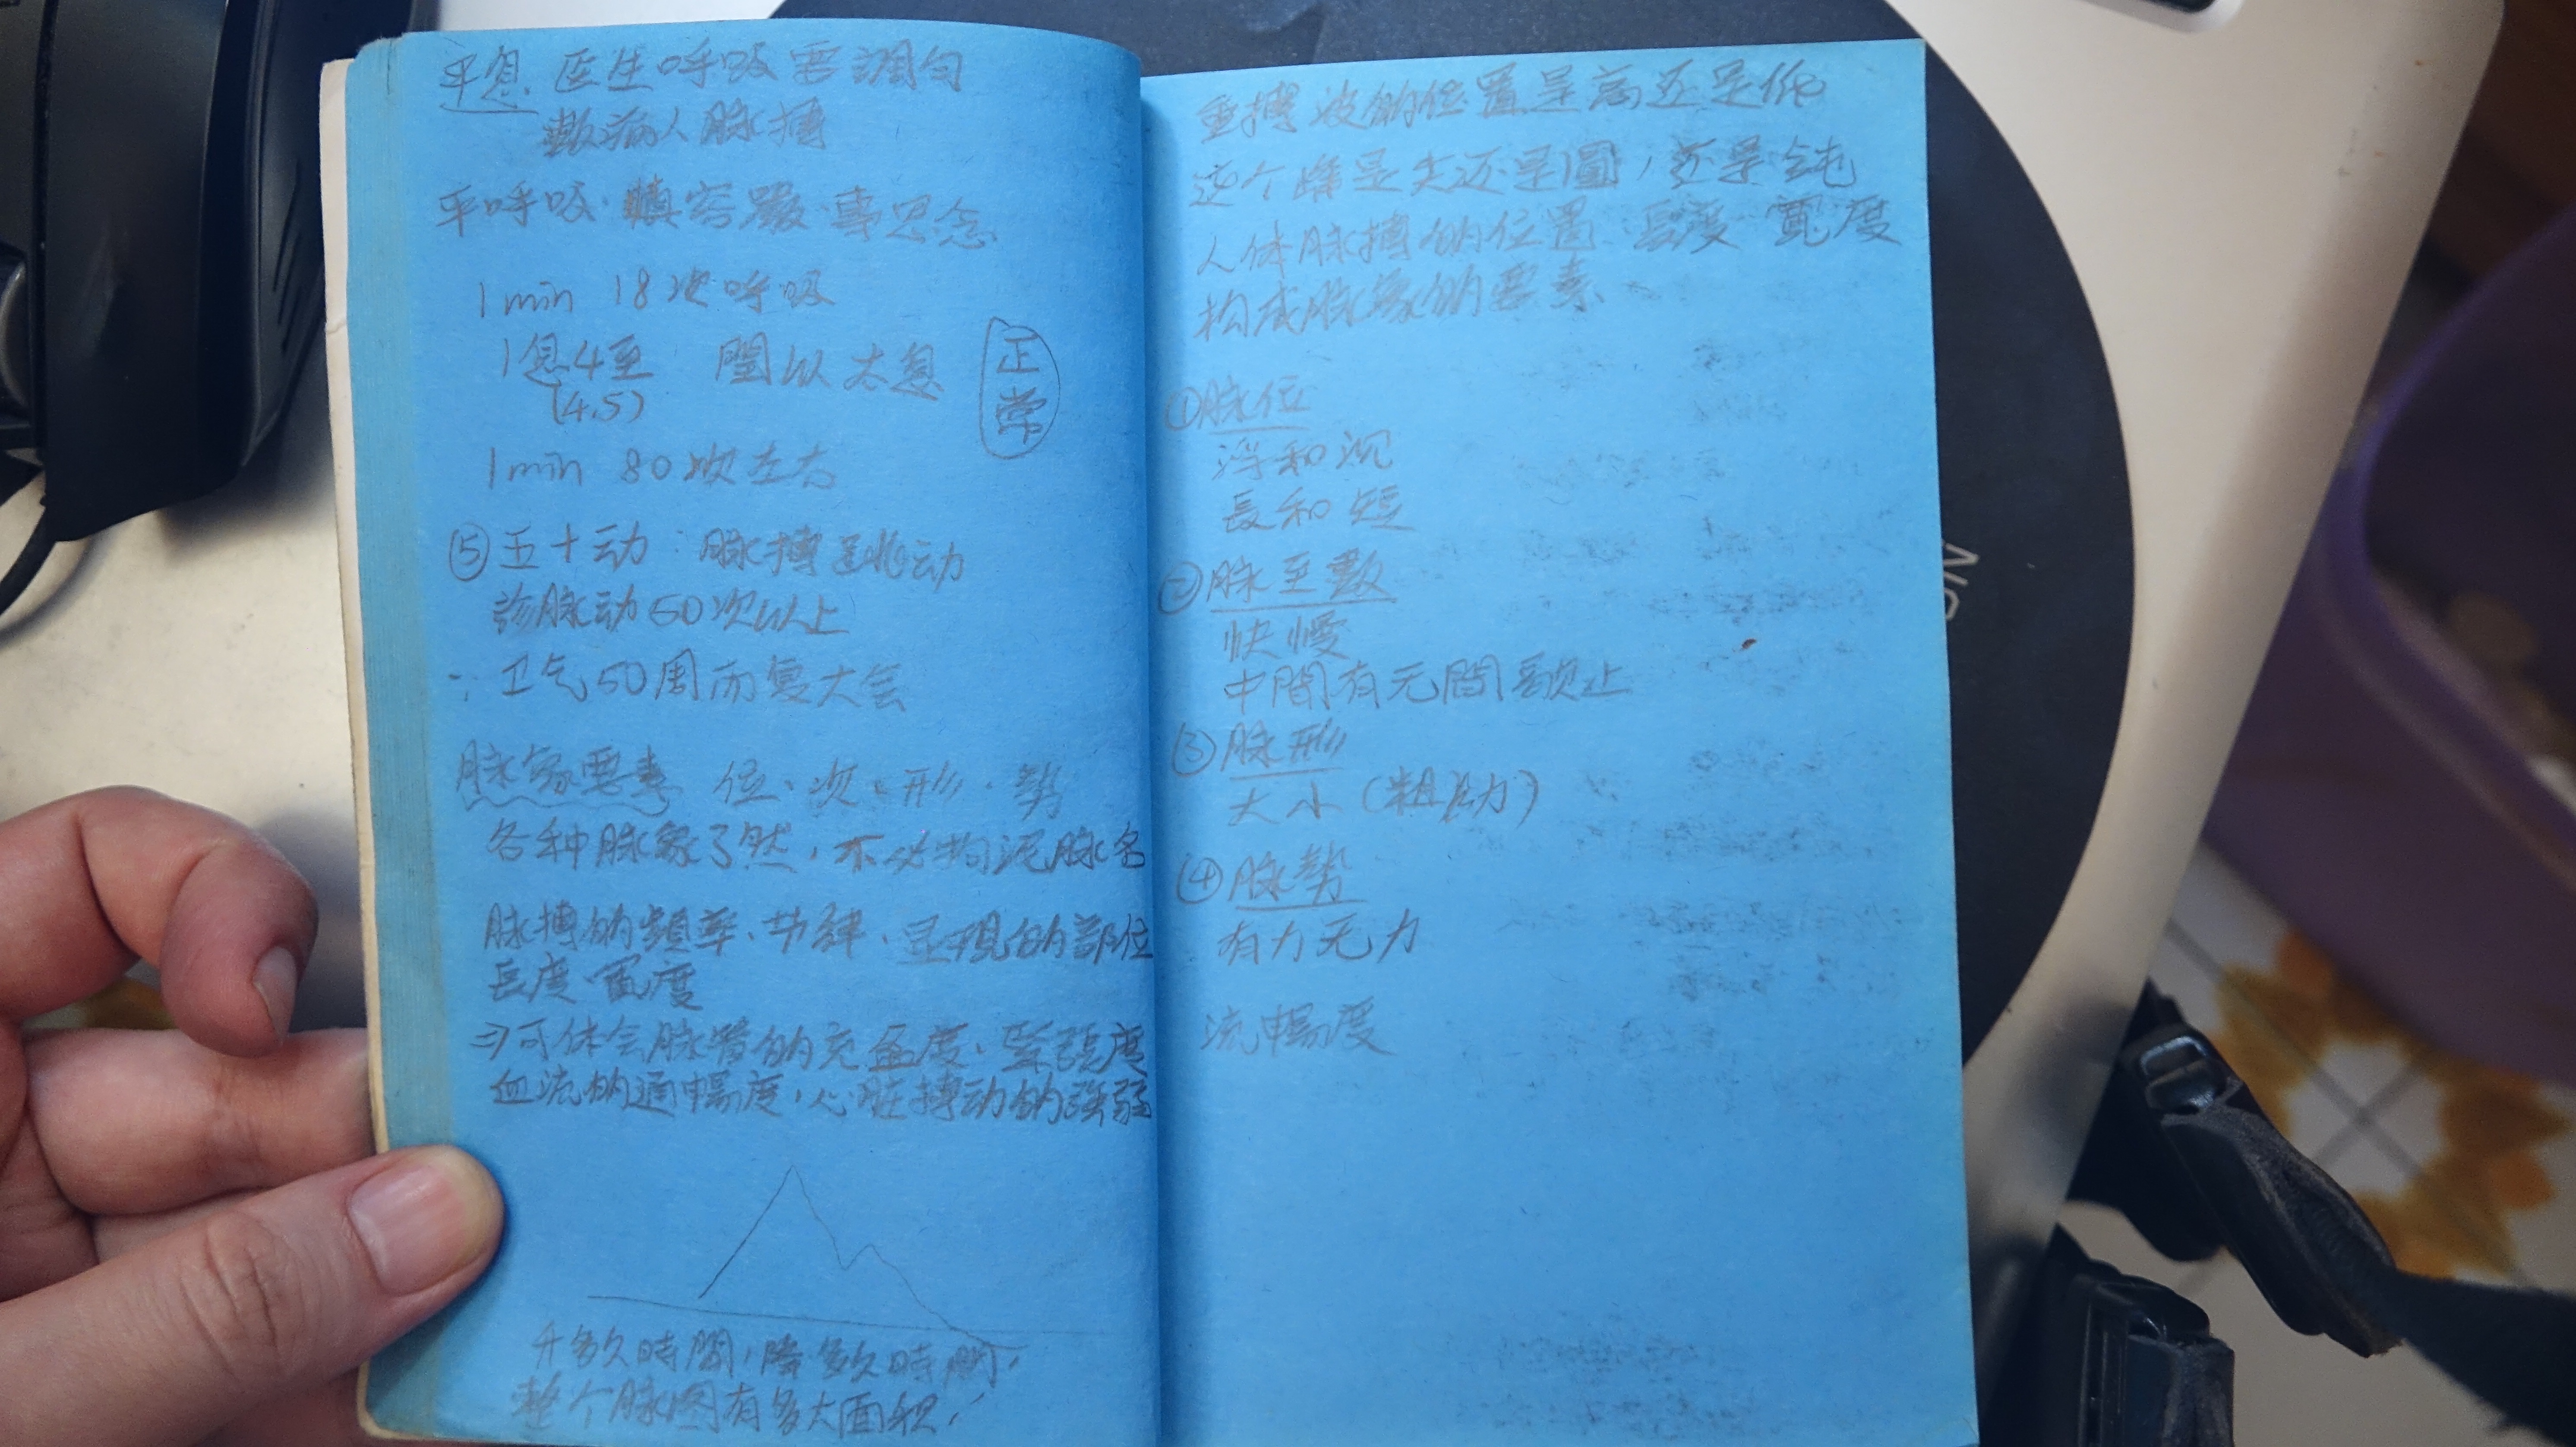 平息 医生呼吸要调匀
數病人脉搏
平呼吸·專思念
1min 18次呼吸
1息4至 閏以太息
(4.5)
正常
1min 80次左右
⑤五十动：脉搏跳动
診脉动50次以上
∵卫气50周而复大会
脉象要素 位、次、形、勢
各种脉象了然，不必拘泥脉名
脉搏的頻率、节律、显現的部位
長度·寬度
⇒可体会脉管的充盈度、緊張度
血流的通暢度，心脏搏动的強弱
升多久時間，降多久時間，
整个脉图有多大面积，
重搏波的位置是高还是低
这个嘴是尖还是圓，还是钝
人体脉搏的位置 長度 寬度
构成脉象的要素
①脉位
浮和沉
長和短
②脉至數
快慢
中間有无間歇止
③脉形
大小(粗)
④脉勢
有力无力
流暢度